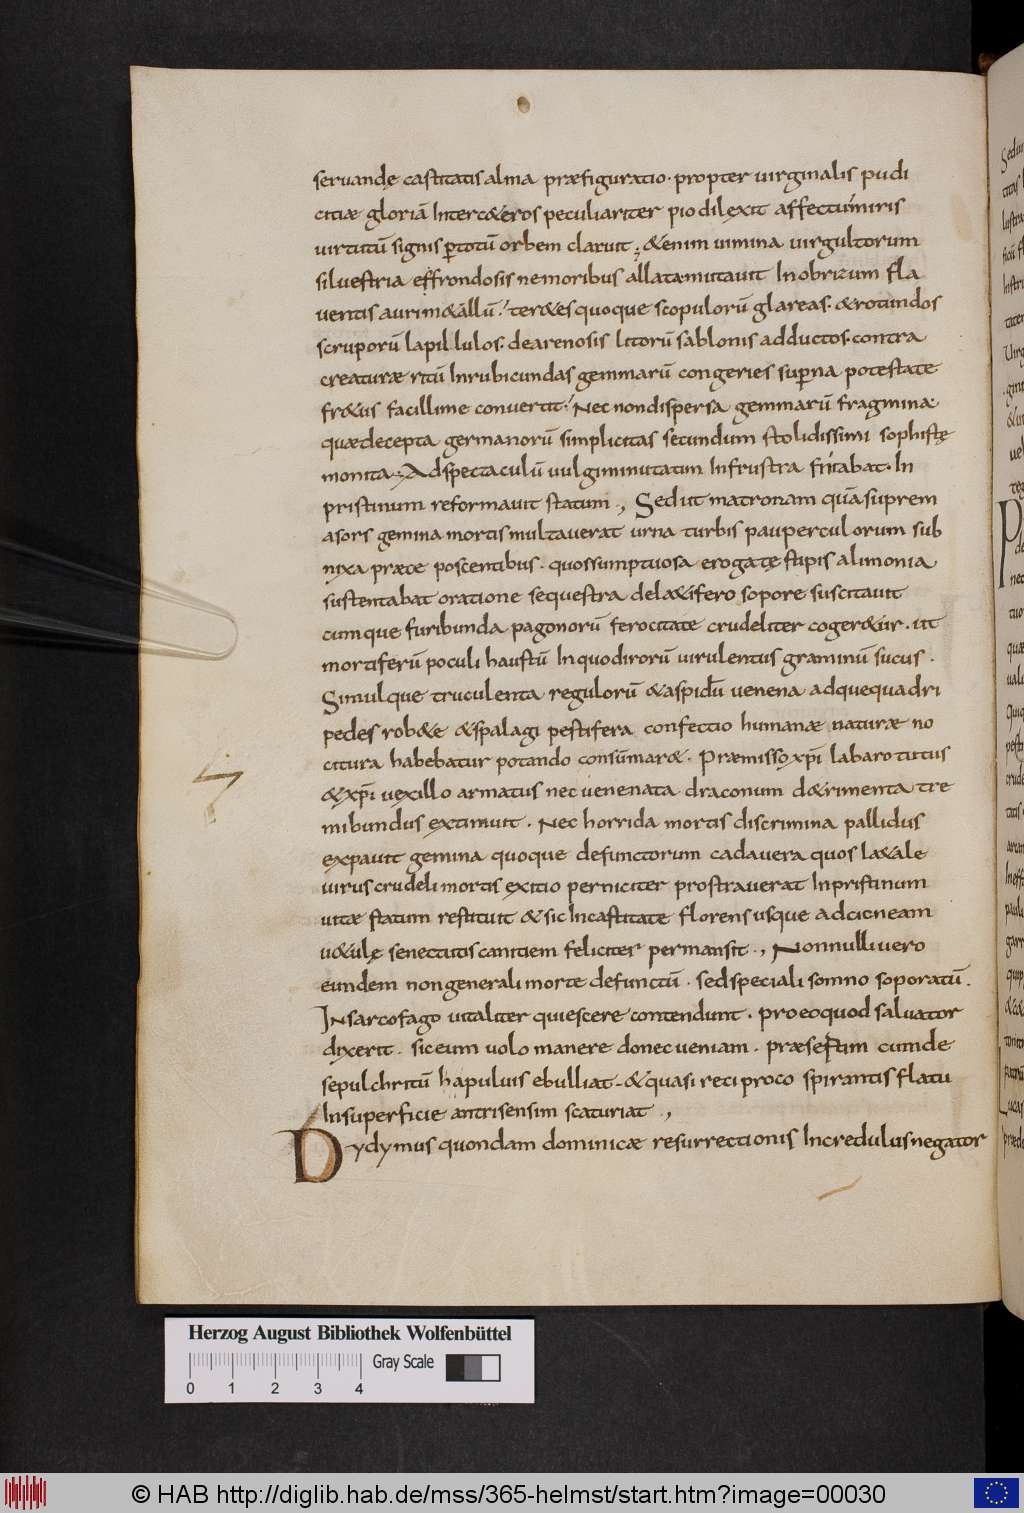 seruandę castitatis alma præfiguratio · propter uirginalis pudi
citiæ gloriā Inter c&eros peculiariter pio dilexit affectu miris
uirtutū signis ꝑ totū orbem claruit ; &enim uimina uirgultorum
siluestria effrondosis nemoribus allata mutauit In obrizum fla
uentis auri m&allū . ter&es quoque scopulorū glareas . & rotundos
scruporū lapillulos . de arenosis litorū sablonis adductos . contra
creaturæ ritū In rubicundas gemmarū congeries suꝑna potestate
fr&us facillime conuertit . Nec non dispersa gemmarū fragmina
quæ decepta germanorū simplicitas secundum stolidissimi sophistę
monita . Ad spectaculū uulgi minutatim In frustra fricabat . In
pristinum reformauit statum ., Sed ut matronam quā suprem
a sors gemina mortis multauerat urna turbis pauperculorum sub
nixa præce poscentibus . quos sumptuosa erogatę stipis alimonia
sustentabat oratione sequestra de l&ifero sopore suscitauit
cumque furibunda pagonorū ferocitate crudeliter coger&ur . ut
mortiferū poculi haustū In quo dirorū uirulentus graminū sucus .
Simulque truculenta regulorū & aspidū uenena ad que quadri
pedes rob&e & spalagi pestifera confectio humanæ naturæ no
citura habebatur potando consūmar& . Præmisso xp̄i labaro tutus
& xp̄i uexillo armatus nec uenenata draconum d&rimenta tre
mibundus extimuit . Nec horrida mortis discrimina pallidus
expauit gemina quoque defunctorum cadauera quos l&ale
uirus crudeli mortis exitio perniciter prostrauerat In pristinum
uitæ statum restituit & sic In castitate florens usque ad cicneam
u&ulę senectutis canitiem feliciter permansit ., Nonnulli uero
eundem non generali morte defunctū . sed speciali somno soporatū .
In sarcofago uitaliter quiescere contendunt . pro eo quod saluator
dixerit . sic eum uolo manere donec ueniam . præsertim cum de
sepulchritū hapuluis ebulliat . & quasi reciproco spirantis flatu
In superficie antri sensim scaturiat .,
Dydymus quondam dominicæ resurrectionis Incredulus negator
Herzog August Bibliothek Wolfenbüttel
Gray Scale
0 1 2 3 4
© HAB http://diglib.hab.de/mss/365-helmst/start.htm?image=00030